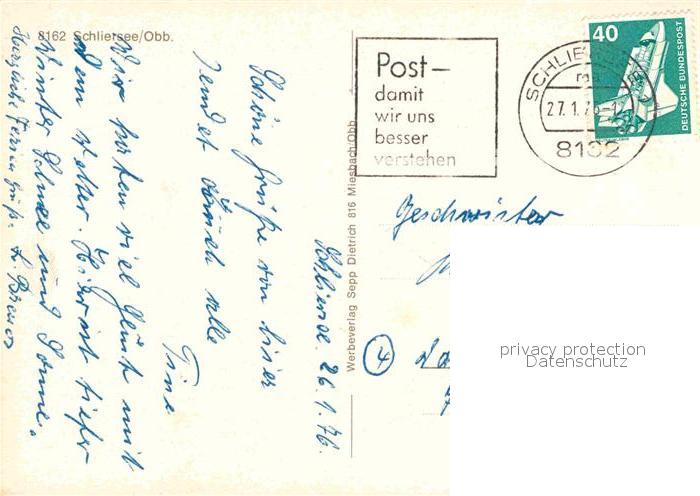 8162 Schliersee/Obb.
Schliersee. 26.1.76.
Schöne Grüße von hier
sendet Euch alle
Tine
Wir haben viel Glück mit
dem Wetter. Hier ist tiefer
Winter Schnee und Sonne.
Herzliche Ferien Grüße.
Werbeverlag Sepp Dietrich 816 Miesbach/Obb.
Post –
damit
wir uns
besser
verstehen
SCHLIE
27.1.76-1
8162
40
DEUTSCHE BUNDESPOST
Geschwister
4
privacy protection
Datenschutz